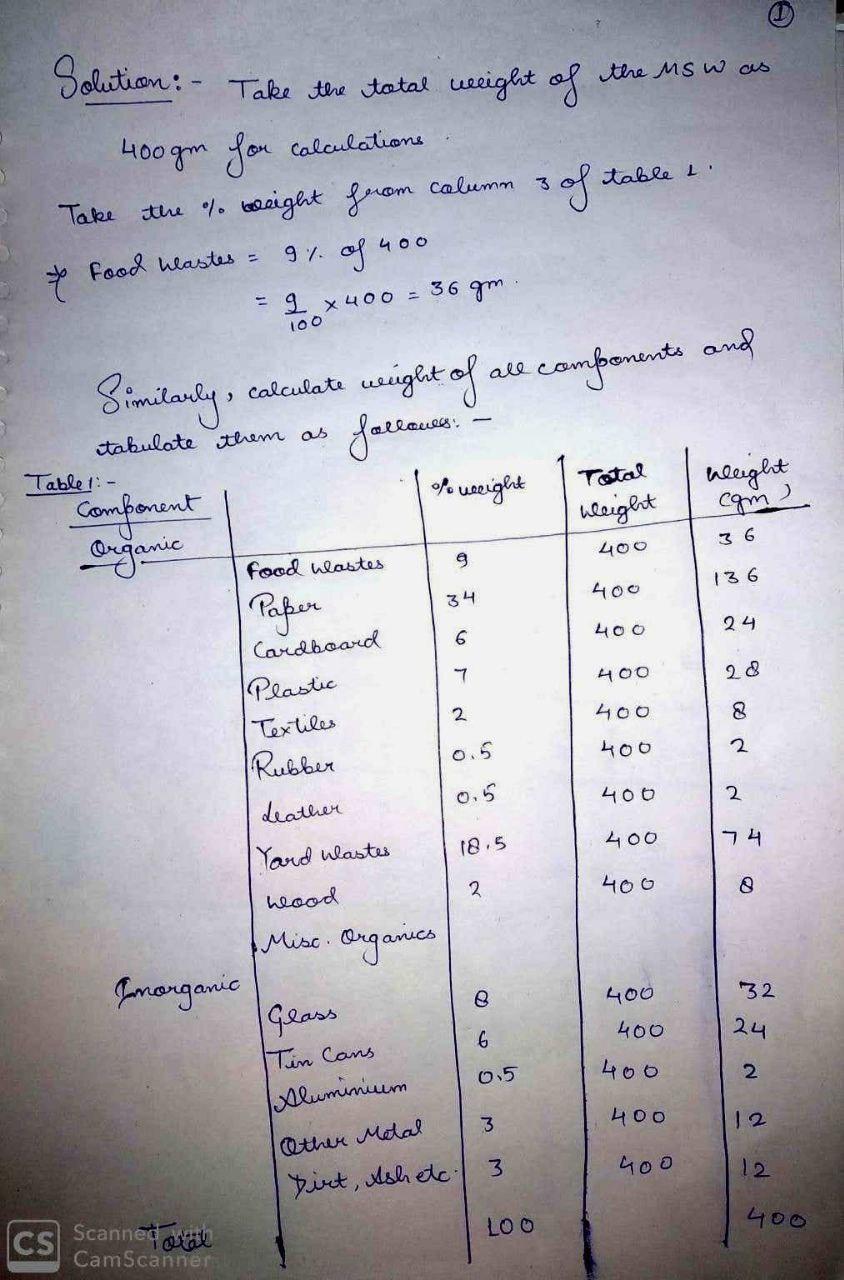 1
Solution:- Take the total weight of the MSW as
400gm for calculations.
Take the % weight from column 3 of table 1.
* Food Wastes = 9% of 400
= 9/100 x 400 = 36 gm.
Similarly, calculate weight of all components and
tabulate them as follows:-
Table 1:-
Component % weight Total Weight Weight (gm)
Organic
Food Wastes 9 400 36
Paper 34 400 136
Cardboard 6 400 24
Plastic 7 400 28
Textiles 2 400 8
Rubber 0.5 400 2
Leather 0.5 400 2
Yard Wastes 18.5 400 74
Wood 2 400 8
Misc. Organics
Inorganic
Glass 8 400 32
Tin Cans 6 400 24
Aluminium 0.5 400 2
Other Metal 3 400 12
Dirt, Ash etc. 3 400 12
Total 100 400
CS Scanned with
CamScanner